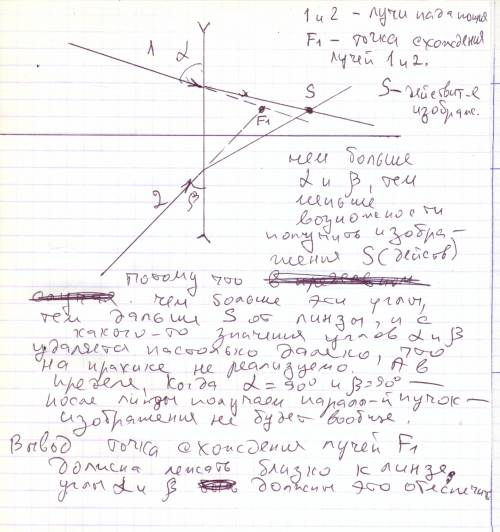 1 и 2 – лучи падающие
F1 – точка схождения
лучей 1 и 2.
S – действит-е
изображ.
1
α
S
F1
2
β
чем больше
α и β, тем
меньше
возможности
получить изобра-
жения S (действ)
потому что
чем больше эти углы,
тем дальше S от линзы, и с
какого-то значения углов α и β
удаляется настолько далеко, что
на практике не реализуемо. А в
пределе, когда α = 90° и β = 90° –
после линзы получаем паралл-й пучок –
изображения не будет вообще.
Вывод точка схождения лучей F1
должна лежать близко к линзе,
углы α и β должны это обеспечить